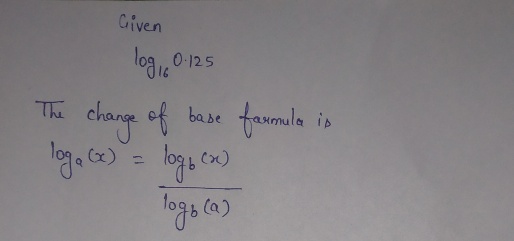 Given
log₁₆ 0.125
The change of base farmula is
logₐ(x) = log_b(x)
log_b(a)